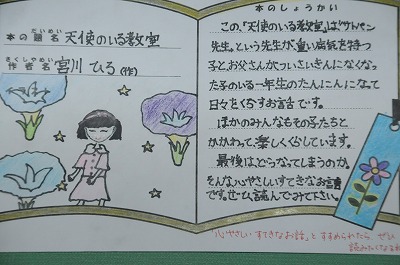 本の題名 天使のいる教室
だいめい
作者名 宮川 ひろ(作)
さくしゃめい
本のしょうかい
この、「天使のいる教室」は「サトパン
先生」という先生が、重い病気を持つ
子と、お父さんがついさいきんになくなっ
た子のいる一年生のたんにんになって
日々をくらすお話です。
ほかのみんなもその子たちと
かかわって、楽しくくらしています。
最後は、どうなってしまうのか。
そんな、心やさしいすてきなお話
です。ぜひ読んでみて下さい。
「心やさしいすてきなお話」とすすめられたら、ぜひ
読みたくなる